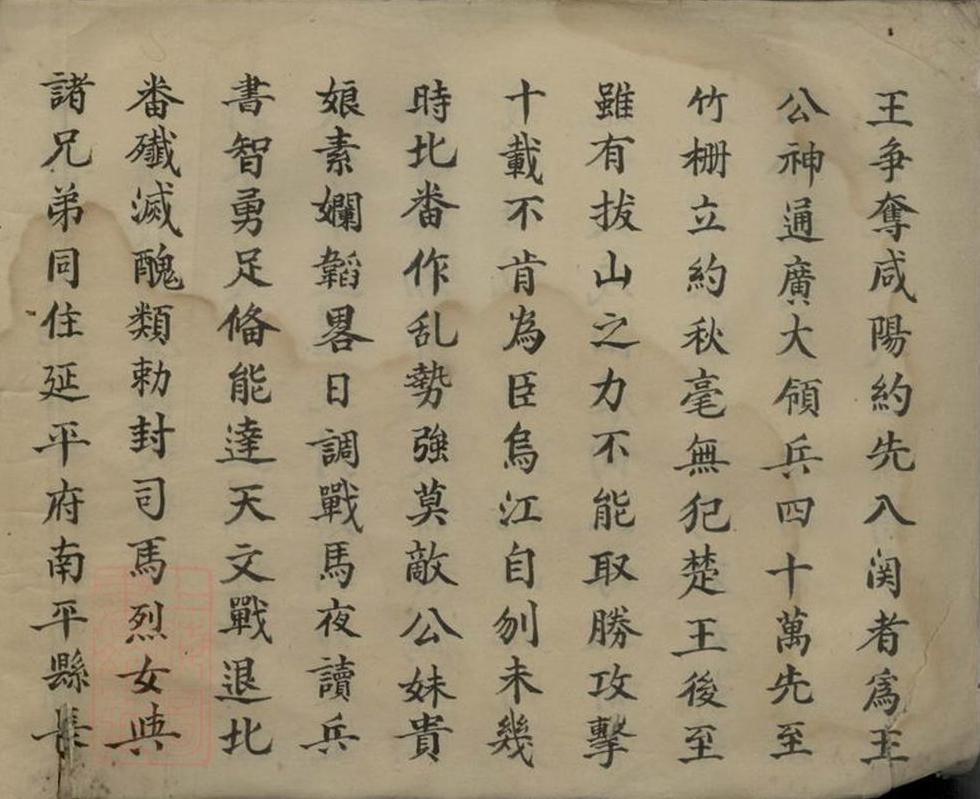 王争奪咸陽約先入関者爲王
公神通廣大領兵四十萬先至
竹栅立約秋毫無犯楚王後至
雖有拔山之力不能取勝攻擊
十載不肯為臣烏江自刎未幾
時北番作乱勢強莫敵公妹貴
娘素嫻韜畧日調戰馬夜讀兵
書智勇足俻能達天文戰退北
番殲滅醜類勅封司馬烈女與
諸兄弟同住延平府南平縣長